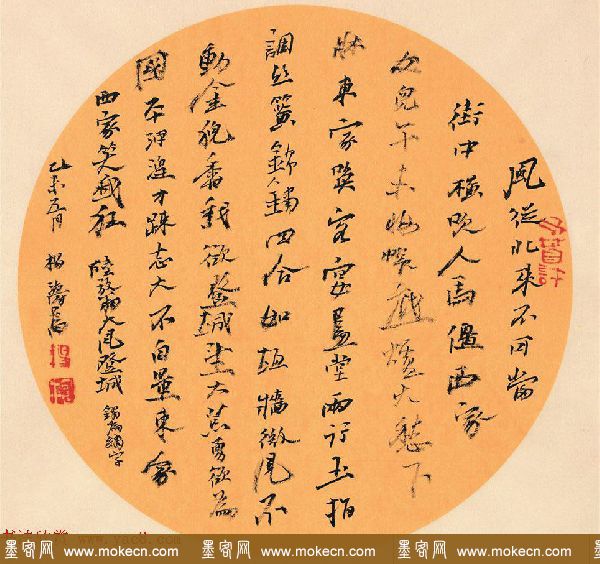 風從北來不可當
街中橫吹人馬僵西家
女兒午未妝帳底爐火愁下
牀東家喚客宴畫堂兩行玉指
調絲簧錦繡四合如垣牆微風不
動金猊香我欲登城望大荒勇欲為
國平河湟才疎志大不自量東家
西家笑我狂 陸放翁大風登城
乙未五月 楊濤書
墨客网 www.mokecn.com 墨客网 www.mokecn.com 墨客网 www.mokecn.com